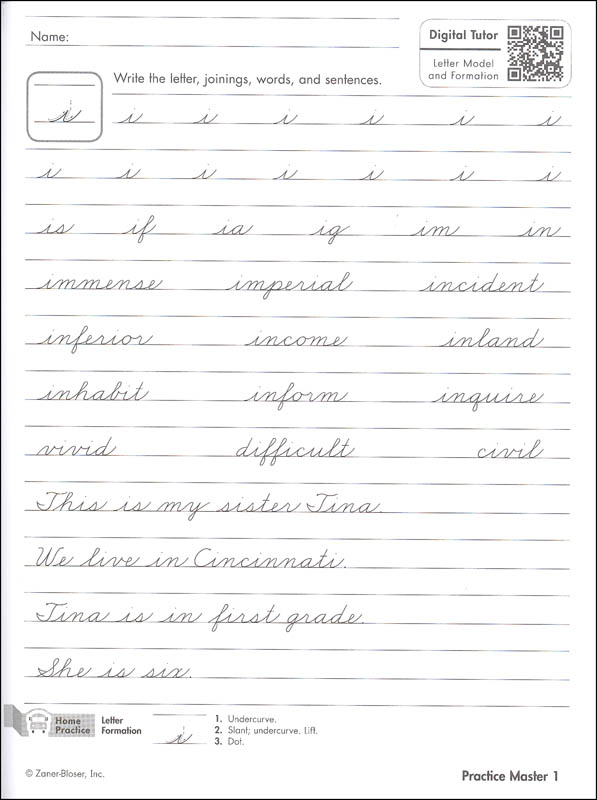 Name:
Digital Tutor
Letter Model
and Formation
Write the letter, joinings, words, and sentences.
i i i i i i i
i i i i i i i
is if ia ig im in
immense imperial incident
inferior income inland
inhabit inform inquire
vivid difficult civil
This is my sister Tina.
We live in Cincinnati.
Tina is in first grade.
She is six.
Home
Practice
Letter
Formation
i
1. Undercurve.
2. Slant; undercurve. Lift.
3. Dot.
© Zaner-Bloser, Inc.
Practice Master 1